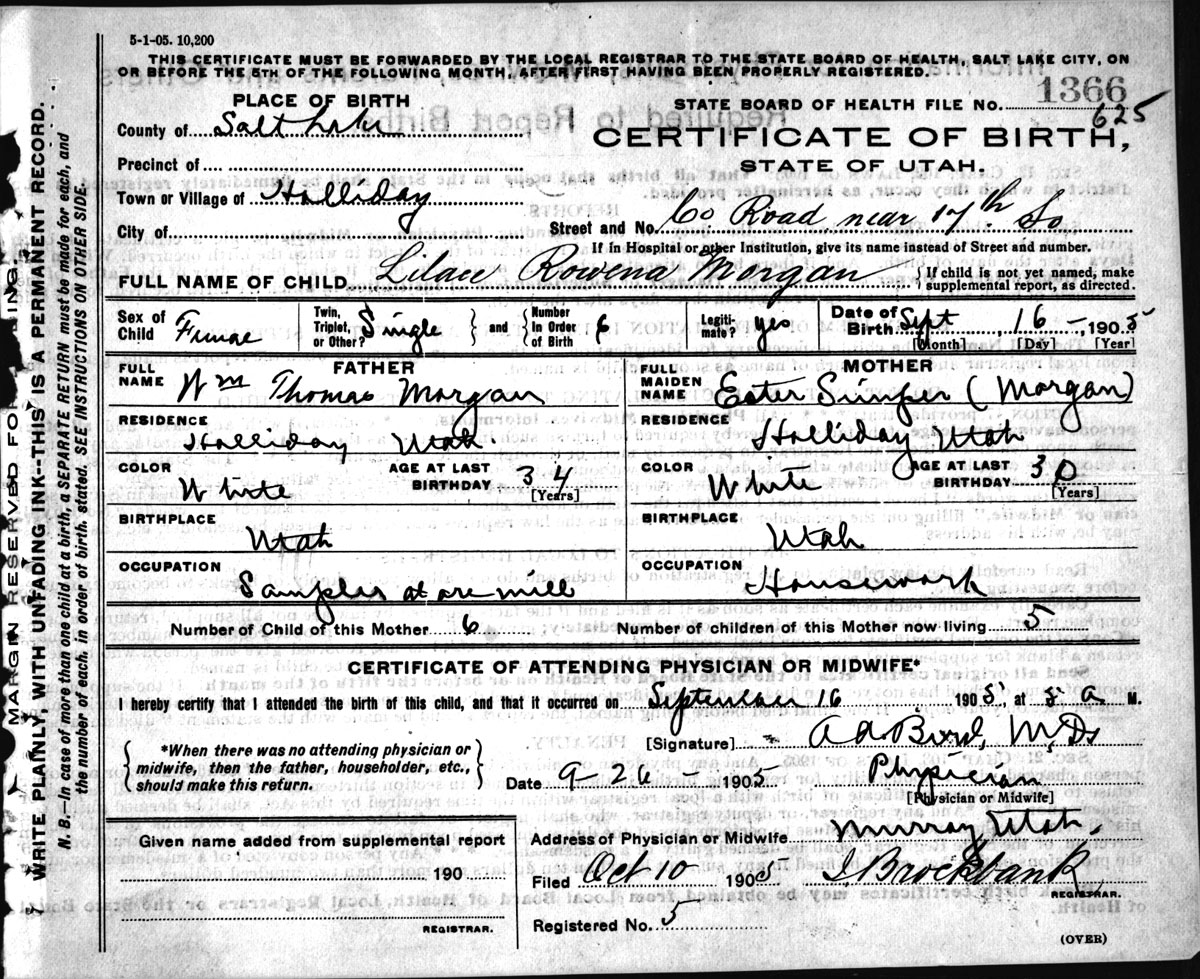 5-1-05. 10,200
THIS CERTIFICATE MUST BE FORWARDED BY THE LOCAL REGISTRAR TO THE STATE BOARD OF HEALTH, SALT LAKE CITY, ON
OR BEFORE THE 5TH OF THE FOLLOWING MONTH, AFTER FIRST HAVING BEEN PROPERLY REGISTERED.
PLACE OF BIRTH
STATE BOARD OF HEALTH FILE NO. 1366
625
County of Salt Lake
CERTIFICATE OF BIRTH,
Precinct of
STATE OF UTAH.
Town or Village of Holliday
City of
Street and No. Co Road near 17th So
If in Hospital or other Institution, give its name instead of Street and number.
FULL NAME OF CHILD Rowena Morgan { If child is not yet named, make supplemental report, as directed.
Sex of Child Female Twin, Triplet, or Other? Single } and { Number in Order of Birth 6 Legitimate? yes Date of Birth Sept 16 - 1905
[Month] [Day] [Year]
FATHER
FULL NAME Wm Thomas Morgan
MOTHER
FULL MAIDEN NAME Ester (Morgan)
RESIDENCE Holliday Utah
RESIDENCE Holliday Utah
COLOR White AGE AT LAST BIRTHDAY 34 [Years]
COLOR White AGE AT LAST BIRTHDAY 30 [Years]
BIRTHPLACE Utah
BIRTHPLACE Utah
OCCUPATION Sampler at ore mill
OCCUPATION Housework
Number of Child of this Mother 6 Number of children of this Mother now living 5
CERTIFICATE OF ATTENDING PHYSICIAN OR MIDWIFE*
I hereby certify that I attended the birth of this child, and that it occurred on September 16 1905, at 5 a M.
{ *When there was no attending physician or midwife, then the father, householder, etc., should make this return. }
[Signature] Bird, M.D.
Date 9-26- 1905 Physician
[Physician or Midwife]
Given name added from supplemental report
190
REGISTRAR.
Address of Physician or Midwife Murray Utah.
Filed Oct 10 1905 Brockbank
REGISTRAR.
Registered No. 5
(OVER)
MARGIN RESERVED FOR BINDING.
WRITE PLAINLY WITH UNFADING INK--THIS IS A PERMANENT RECORD.
N. B.--In case of more than one child at a birth, a SEPARATE RETURN must be made for each, and
the number of each, in order of birth, stated. SEE INSTRUCTIONS ON OTHER SIDE.